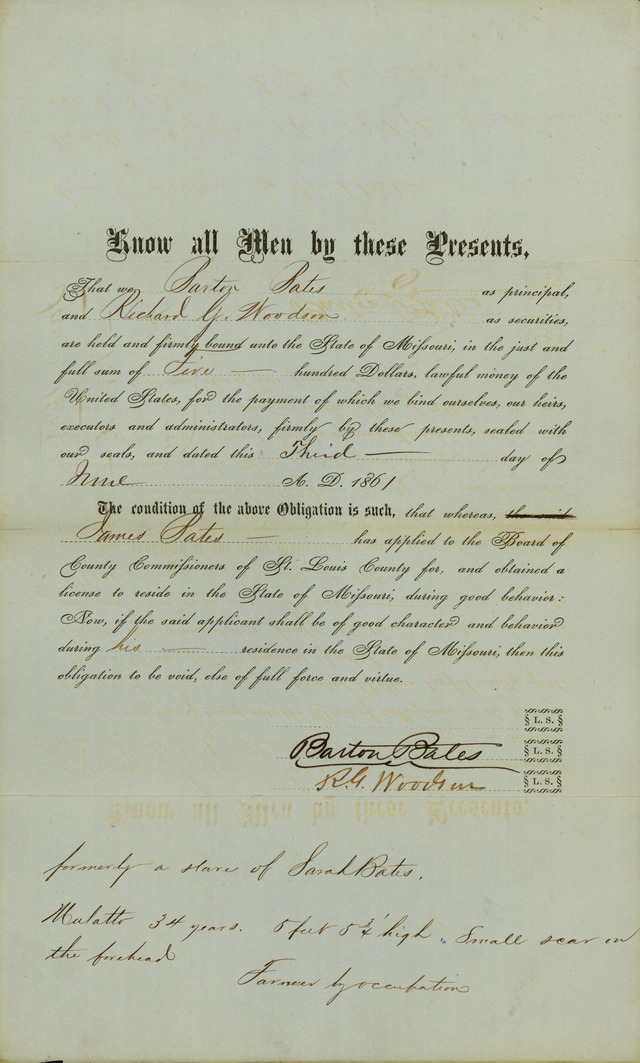 Know all Men by these Presents,
That we Barton Bates as principal,
and Richard G. Woodson as securities,
are held and firmly bound unto the State of Missouri, in the just and
full sum of Five hundred Dollars, lawful money of the
United States, for the payment of which we bind ourselves, our heirs,
executors and administrators, firmly by these presents, sealed with
our seals, and dated this Third day of
June A. D. 1861
The condition of the above Obligation is such, that whereas, the said
James Bates has applied to the Board of
County Commissioners of St. Louis County for, and obtained a
license to reside in the State of Missouri, during good behavior:
Now, if the said applicant shall be of good character and behavior
during his residence in the State of Missouri, then this
obligation to be void, else of full force and virtue.
L. S.
Barton Bates L. S.
R. G. Woodson L. S.
formerly a slave of Sarah Bates.
Mulatto 34 years. 5 feet 5 3/4 high. Small scar on
the forehead
Farmer by occupation